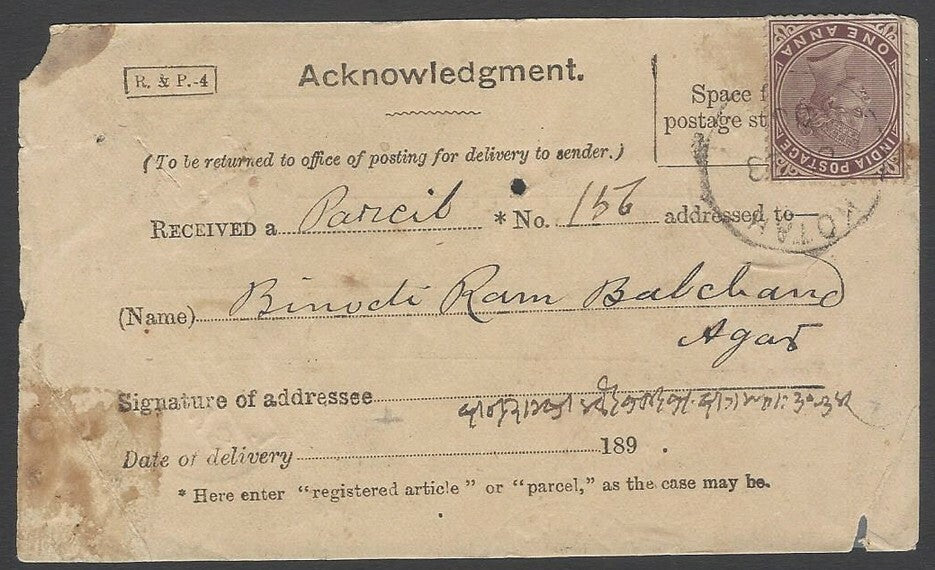 R. & P.-4
Acknowledgment.
Space f
postage st
ONE ANNA
INDIA POSTAGE
(To be returned to office of posting for delivery to sender.)
KOTAH
RECEIVED a Parcil * No. 156 addressed to—
(Name) Binodi Ram Balchand
Agar
Signature of addressee
Date of delivery 189 .
* Here enter "registered article" or "parcel," as the case may be.